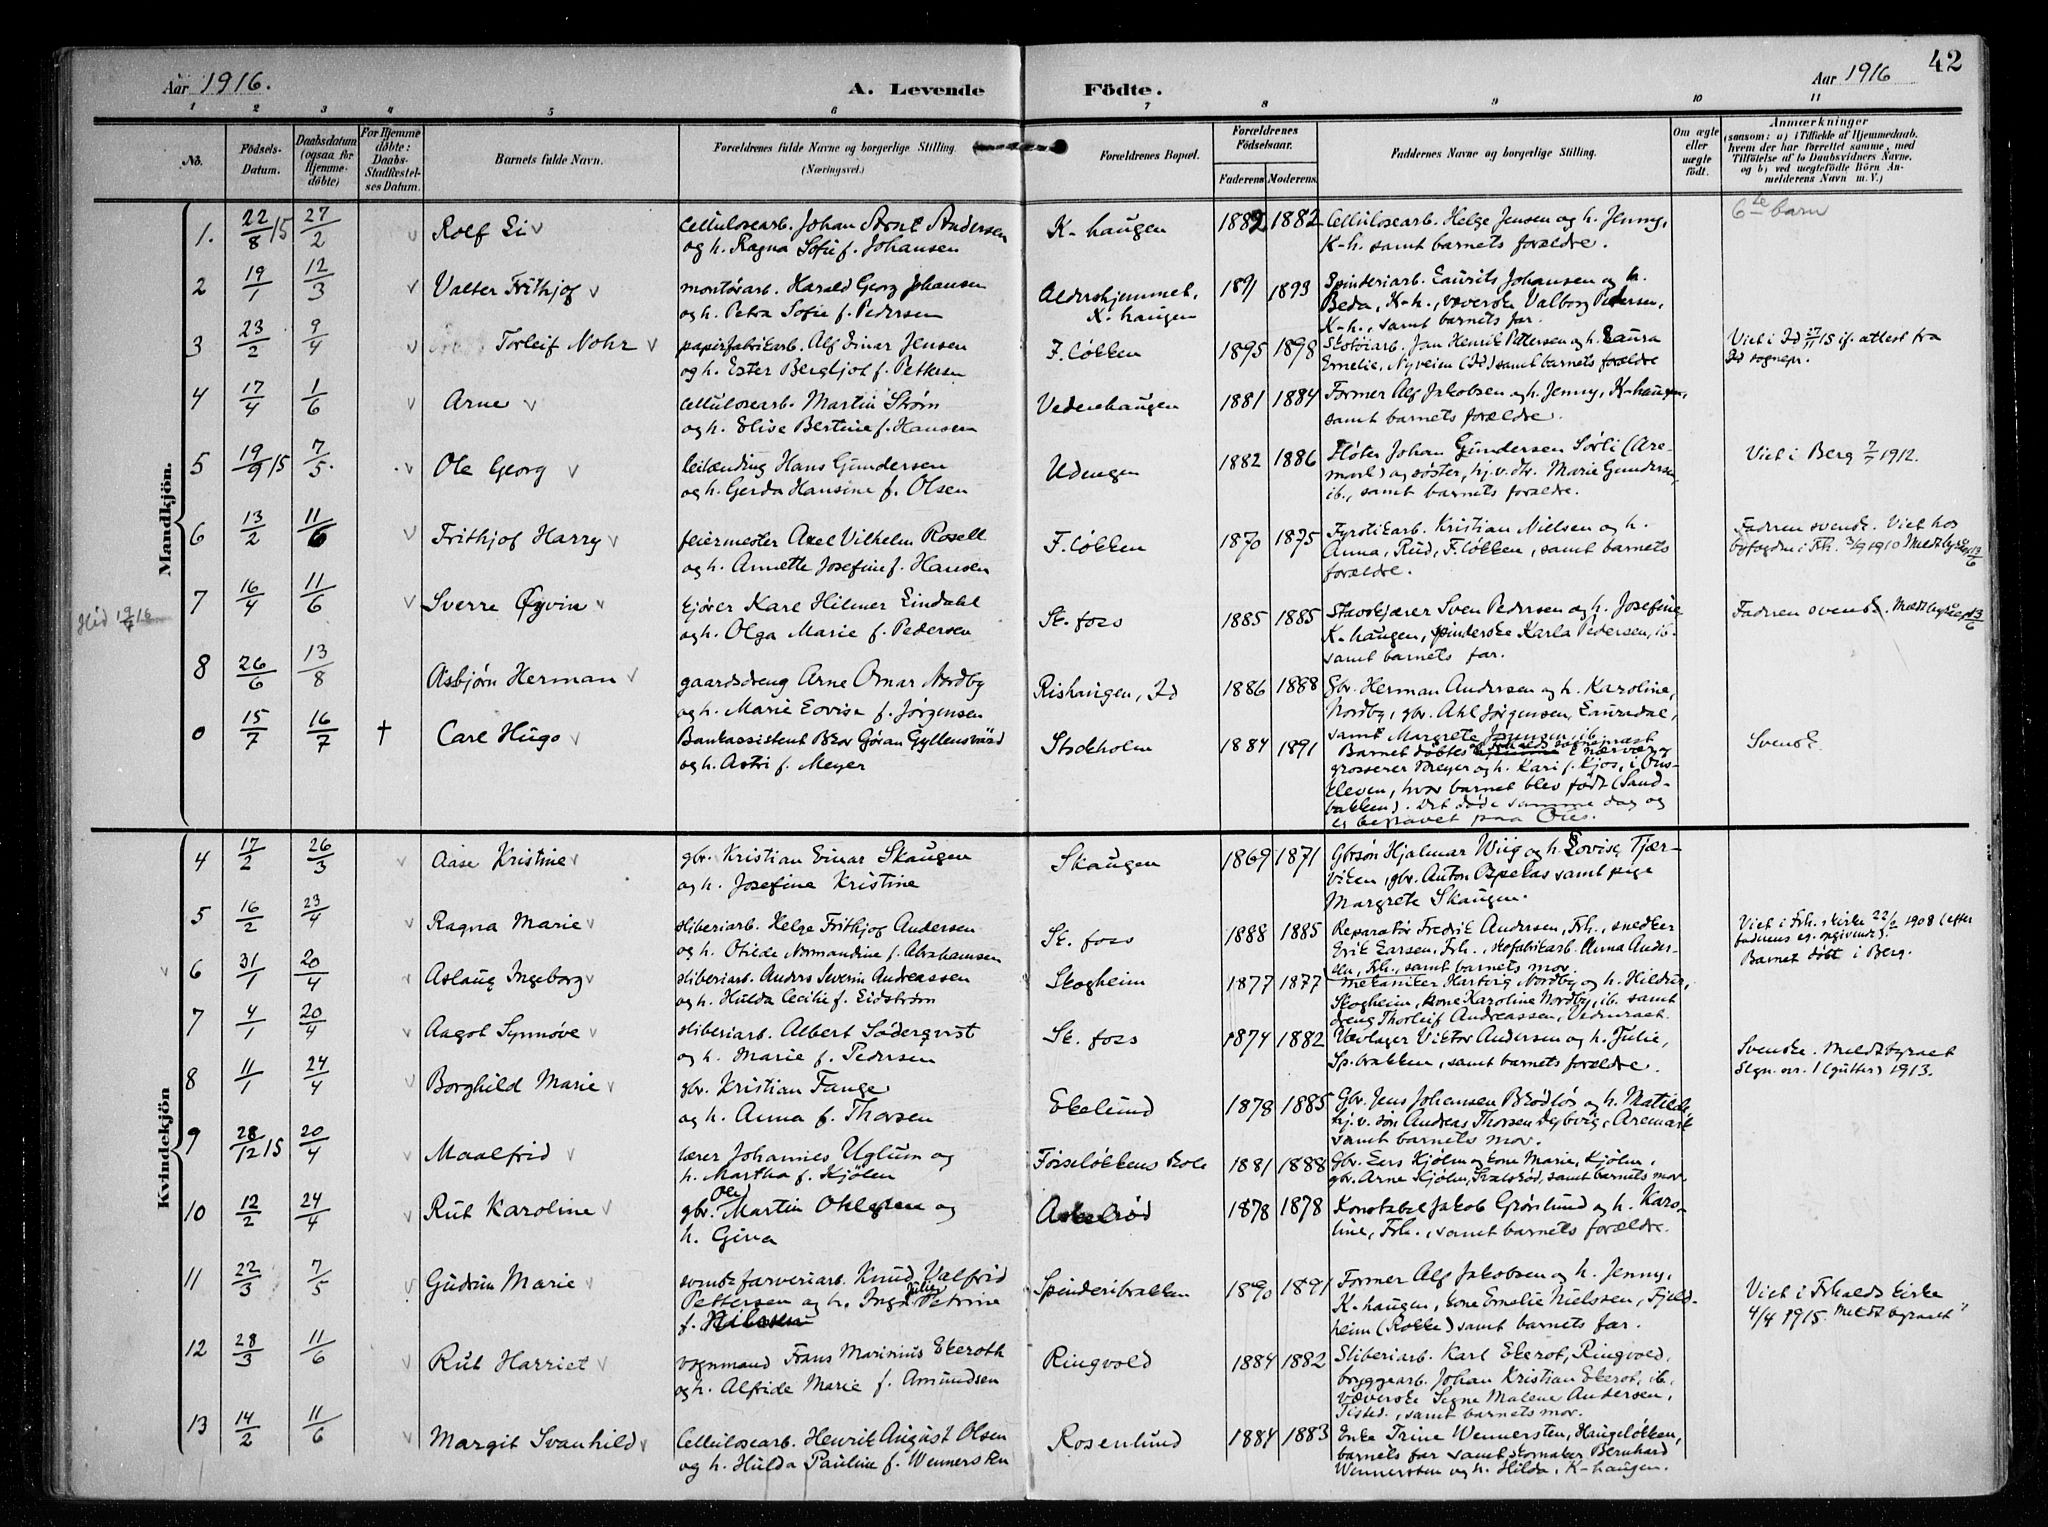 Aar 1916.
A. Levende Födte.
Aar 1916
42
1 2 3 4 5 6 7 8 9 10 11
No.
Födsels-Datum.
Daabsdatum (ogsaa for Hjemmedöbte)
For Hjemmedöbte: Daabs-Stadfæstelses Datum.
Barnets fulde Navn.
Forældrenes fulde Navne og borgerlige Stilling. (Næringsvei.)
Forældrenes Bopæl.
Forældrenes Födselsaar.
Faderens Moderens
Faddernes Navne og borgerlige Stilling.
Om ægte eller uægte födt.
Anmærkninger
(saasom: a) i Tilfælde af Hjemmedaab, hvem der har forrettet samme, med Tilföielse af to Daabsvidners Navne, og b) ved uægtefödte Börn Anmelderens Navn m. V.)
Mandkjön.
1. 22/8 15 27/2 Rolf Ei
cellulosearb. Johan Arnt Andersen
og h. Ragna Sofie f. Johansen
K-haugen 1882 1882
Cellulosearb. Helge Jensen og h. Jenny,
K-h. samt barnets forældre.
6te barn
2 19/1 12/3 Valter Frithjof
montørarb. Harald Georg Johansen
og h. Petra Sofie f. Pedersen
Aldershjemmet,
K-haugen
1891 1893
Spinderiarb. Laurits Johansen og h.
Beda, K-h., væverske Valborg Pedersen,
K-h., samt barnets far.
3 23/2 9/4 Torleif Nohr
papirfabrikarb. Alf Einar Jensen
og h. Ester Bergljot f. Pettersen
F. løkken 1895 1898
Skotøiarb. Jan Henrik Pettersen og h. Laura
Emelie, Nyveien (Id) samt barnets forældre
Viet i Id 27/11 15 if. attest fra
Id sognepr.
4 17/4 1/6 Arne
cellulosearb. Martin Strøm
og h. Elise Bertine f. Hansen
Vedenhaugen 1881 1884
Former Alf Jakobsen og h. Jenny, K-haugen,
samt barnets forældre.
5 19/9 15 7/5 Ole Georg
leilænding Hans Gundersen
og h. Gerda Hansine f. Olsen
Udengen 1882 1886
Fløter Johan Gundersen Sørli (Are-
mark) og søster, hj.v.dtr. Marie Gundersen,
ib., samt barnets forældre.
Viet i Berg 7/7 1912.
6 13/2 11/6 Frithjof Harry
feiermester Axel Vilhelm Rosell
og h. Annette Josefine f. Hansen
F. løkken 1870 1875
Fyrstikarb. Kristian Nielsen og h.
Anna, Rud, F. løkken, samt barnets
forældre.
Fadren svensk. Viet hos
byfogden i Frh. 3/9 1910 Meldt byr. 13/6
7 16/4 11/6 Sverre Øyvin
kjører Karl Hilmer Lindahl
og h. Olga Marie f. Pedersen
St. foss 1885 1885
Stavskjærer Sven Pedersen og h. Josefine
K-haugen, spinderske Karla Pedersen, ib.
samt barnets far.
Fadren svensk. Meldt 13/6
8 26/6 13/8 Asbjørn Herman
gaardsdreng Arne Omar Nordby
og h. Marie Lovise f. Jørgensen
Rishaugen, Id 1886 1888
Gbr. Herman Andersen og h. Karoline,
Nordby, gbr. Ahl Jørgensen, Lauredal,
samt Margrete Jensen, ib.
0 15/7 16/7 † Carl Hugo
Bankassistent Bror Göran Gyllensvärd
og h. Astri f. Meyer
Stockholm 1884 1891
Barnet døbtes
grosserer Meyer og h. Kari f. Kjos, i Ous-
kleven, hvor barnet blev født (Sand-
bakken). Det døde samme dag og
er begravet paa Ous.
Svensk.
Kvindekjön
4 17/2 26/3 Aase Kristine
gbr. Kristian Einar Skaugen
og h. Josefine Kristine
Skaugen 1869 1871
Gbrsøn Hjalmar Wiig og h. Lovise, Tjær-
viken, gbr. Anton Ospelas samt pige
Margrete Skaugen.
5 16/2 23/4 Ragna Marie
sliberiarb. Helge Frithjof Andersen
og h. Otilde Normandine f. Abrahamsen
St. foss 1888 1885
Reparatør Fredrik Andersen, Frh., snedker
Erik Larsen, Frh., skofabrikarb. Anna Ander-
sen, Frh., samt barnets mor.
Viet i Frh. kirke 22/2 1908 (efter
faderens eg. opgivende).
Barnet døbt i Berg.
6 31/1 20/4 Aslaug Ingeborg
sliberiarb. Anders Severin Andreassen
og h. Hulda Cecilie f. Eidstrøm
Skogheim 1877 1877
mekaniker Hartvig Nordby og h. Hildur,
Skogheim, kone Karoline Nordby, ib. samt
dreng Thorleif Andreassen,
7 4/1 20/4 Aagot Synnøve
sliberiarb. Albert Söderqvist
og h. Marie f. Pedersen
St. foss 1874 1882
Vævlager Viktor Andersen og h. Julie,
Sp. brakken, samt barnets forældre.
Svenske. Meldt byraet
Segn. nr. 1 (gutter) 1913.
8 11/1 24/4 Borghild Marie
gbr. Kristian Fange
og h. Anna f. Thorsen
Ekelund 1878 1885
Gbr. Jens Johansen Brødløs og h. Matilde,
hj. v. søn Andreas Thorsen Dybvig, Aremark
samt barnets mor.
9 28/12 15 20/4 Maalfrid
lærer Johannes Uglum og
h. Martha f. Kjølen
Førsteløkkens skole 1881 1888
Gbr. Lars Kjølen og kone Marie, Kjølen,
gbr. Arne Kjølen, samt barnets mor.
10 12/2 24/4 Rut Karoline
gbr. Martin Ole Ohlgren og
h. Gina
Askelrød 1878 1878
Konstabel Jakob Grønlund og h. Karo-
line, Frh., samt barnets forældre.
11 22/3 7/5 Gudrun Marie
svensk farveriarb. Knud Valfrid
Pettersen og h. Inga Julie Petrine
f. Nilssen
Spinderibrakken 1890 1891
Former Alf Jakobsen og h. Jenny,
K-haugen, kone Emelie Nielssen, Fjeld-
heim (Rokke) samt barnets far.
Viet i Frhalds kirke
4/4 1915. Meldt byraaet
12 28/3 11/6 Rut Harriet
vognmand Frans Marinius Ekeroth
og h. Alfride Marie f. Amundsen
Ringvold 1884 1882
Sliberiarb. Karl Ekerot, Ringvold,
bryggearb. Johan Kristian Ekerot, ib.
væverske Signe Malene Andersen,
Tisted., samt barnets mor.
13 14/2 11/6 Margit Svanhild
Cellulosearb. Henrik August Olsen
og h. Hulda Pauline f. Wennersten
Rosenlund 1884 1883
Enke Trine Wennersten, Haugeløkken,
barnets far samt skomaker Bernhard
Wennersten og h. Hilda, K-haugen.